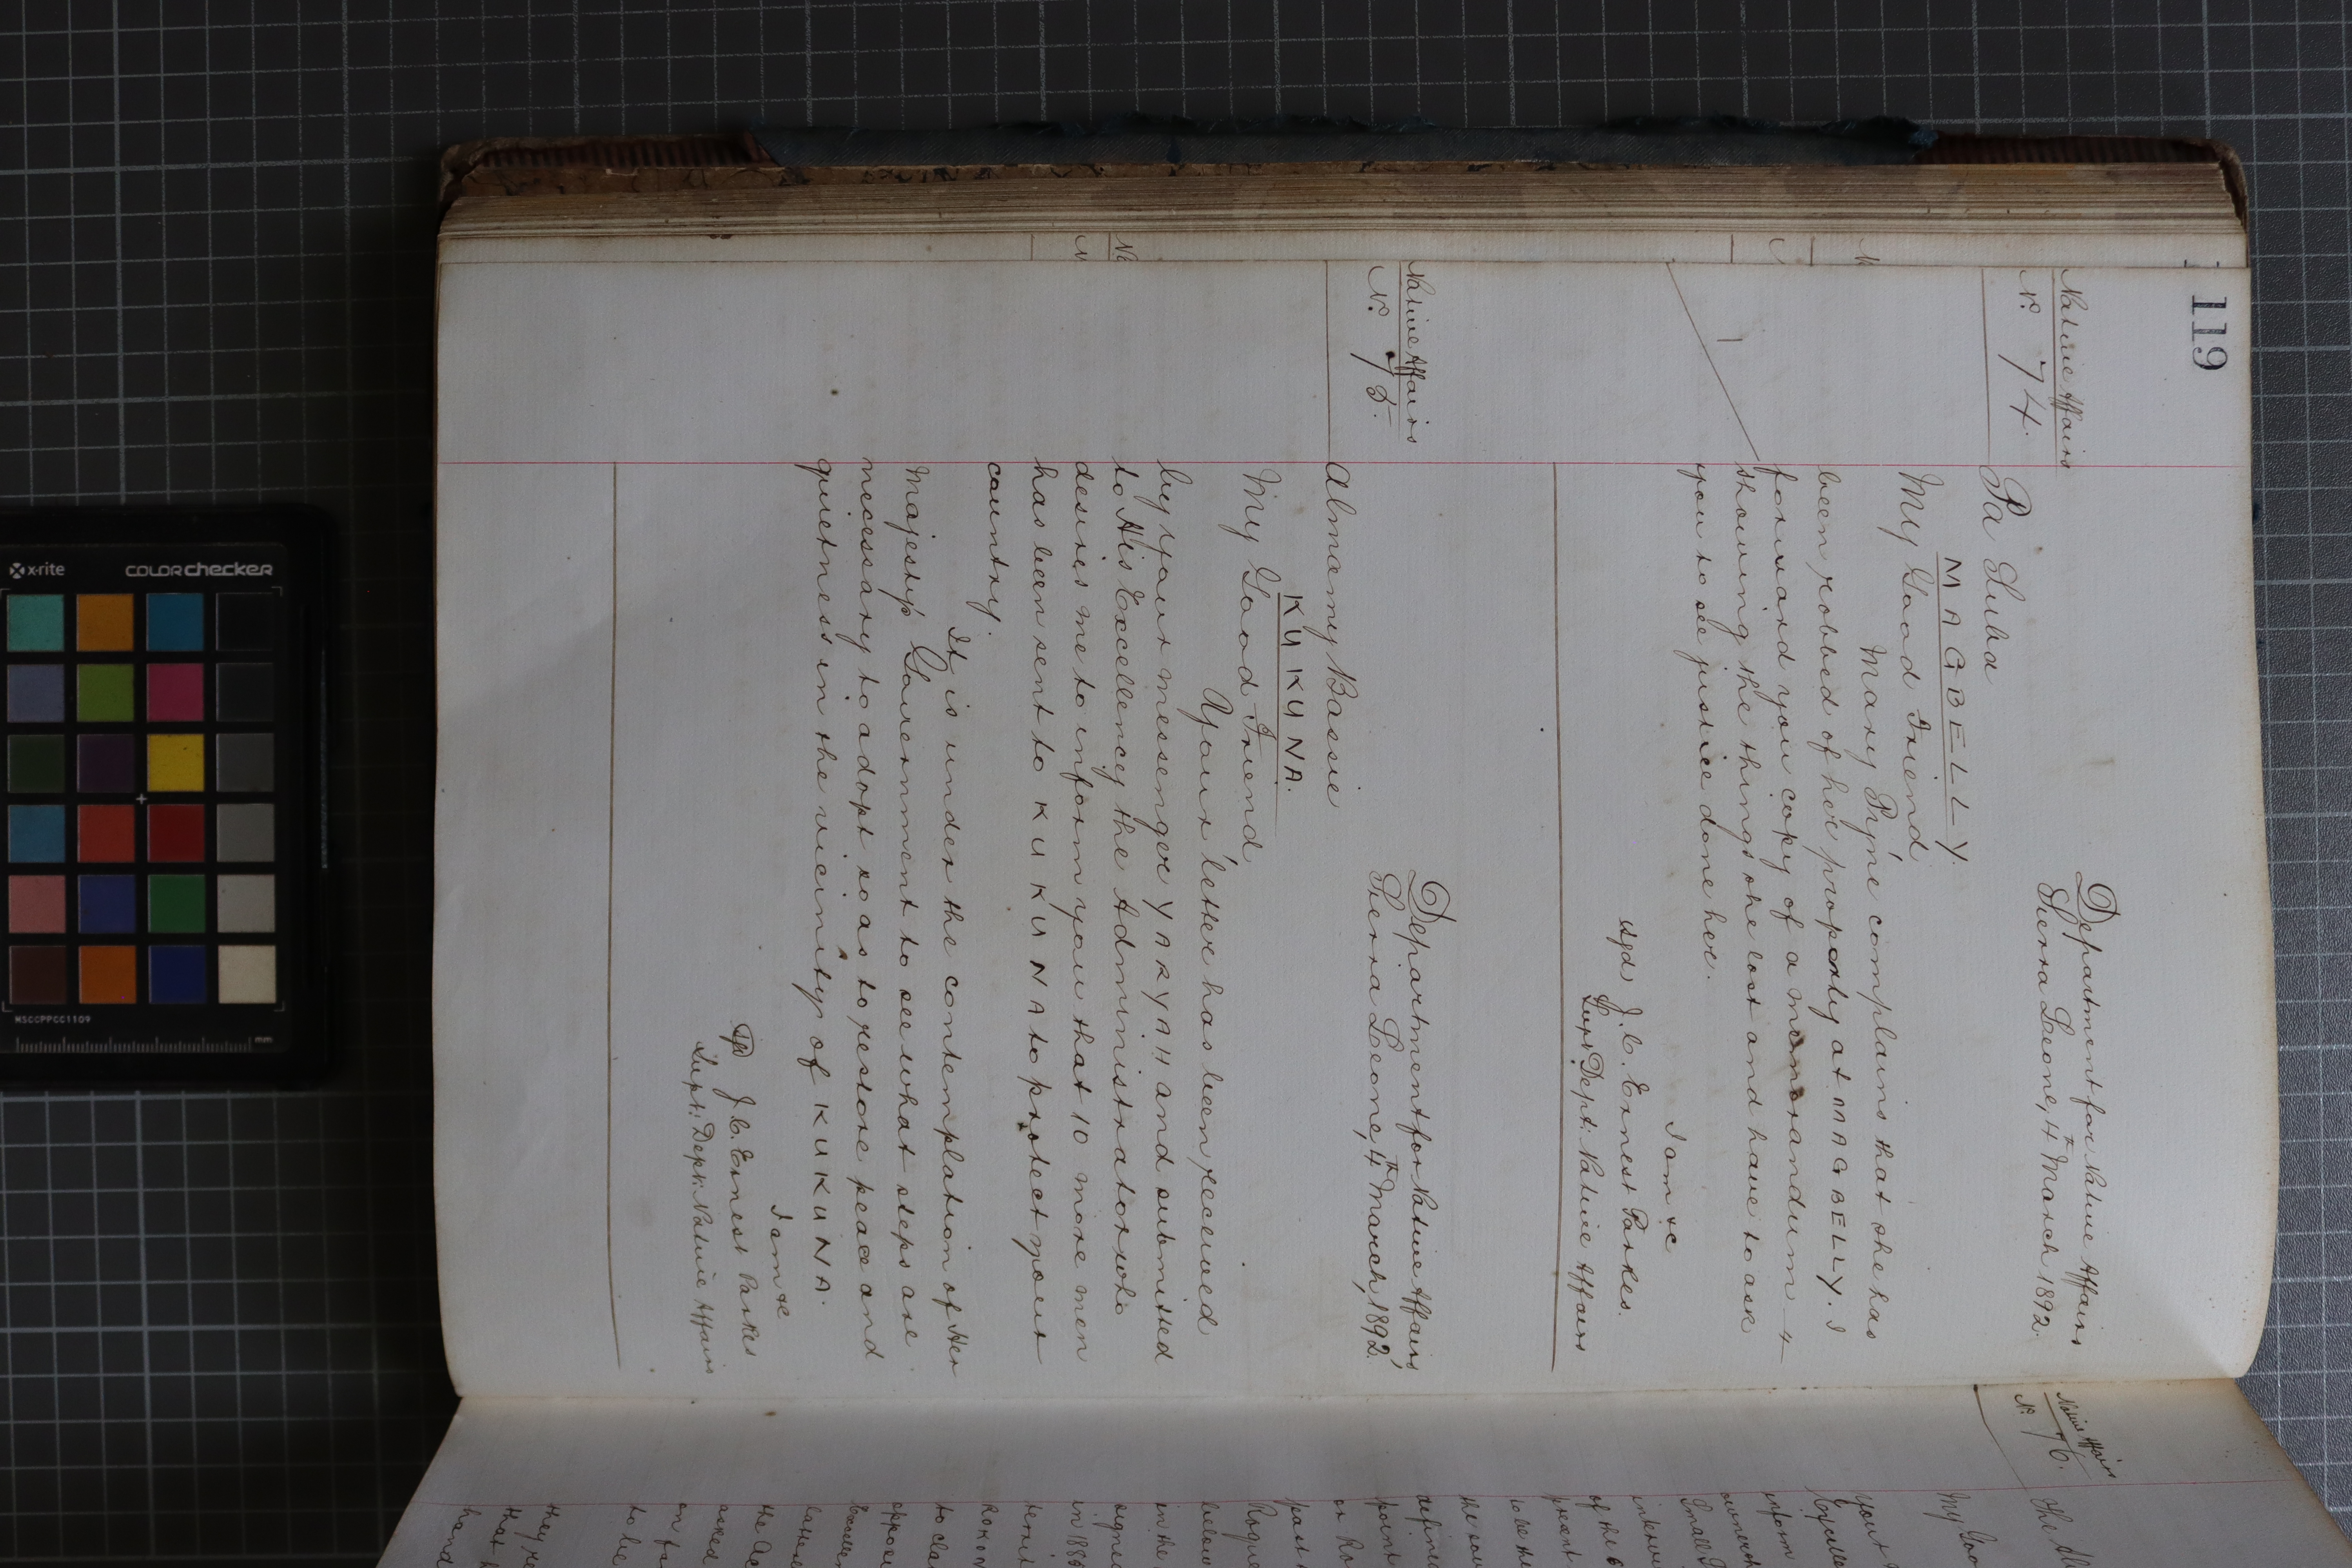 119
Native Affairs
No. 74.
Department for Native Affairs
Sierra Leone, 4th March 1892.
Pa Suba
MAGBELLY.
My Good Friend
Mary Pyne complains that she has
been robbed of her property at MAGBELLY. I
forward you copy of a memorandum
showing the things she lost and have to ask
you to see justice done her.
I am &c
sgd J. C. Ernest Parkes.
Supt Dept. Native Affairs
Native Affairs
No. 75.
Department for Native Affairs,
Sierra Leone, 4th March, 1892.
Almamy Bassie
KUKUNA.
My Good Friend
Your letter has been received
by your messenger YARYAH and submitted
to His Excellency the Administrator who
desires me to inform you that 10 more men
has been sent to KUKUNA to protect your
country.
It is under the contemplation of Her
Majesty's Government to see what steps are
necessary to adopt so as to restore peace and
quietness in the vicinity of KUKUNA.
I am &c
J. C. Ernest Parkes
Supt: Dept: Native Affairs
Native Affairs
No. 76.
My Goo
your
inform
Small
of the
present
to be the
the
point
on Ro
past
Roque
below
in the
in 188
to cla
the
asked
on
to be
they
that
hand